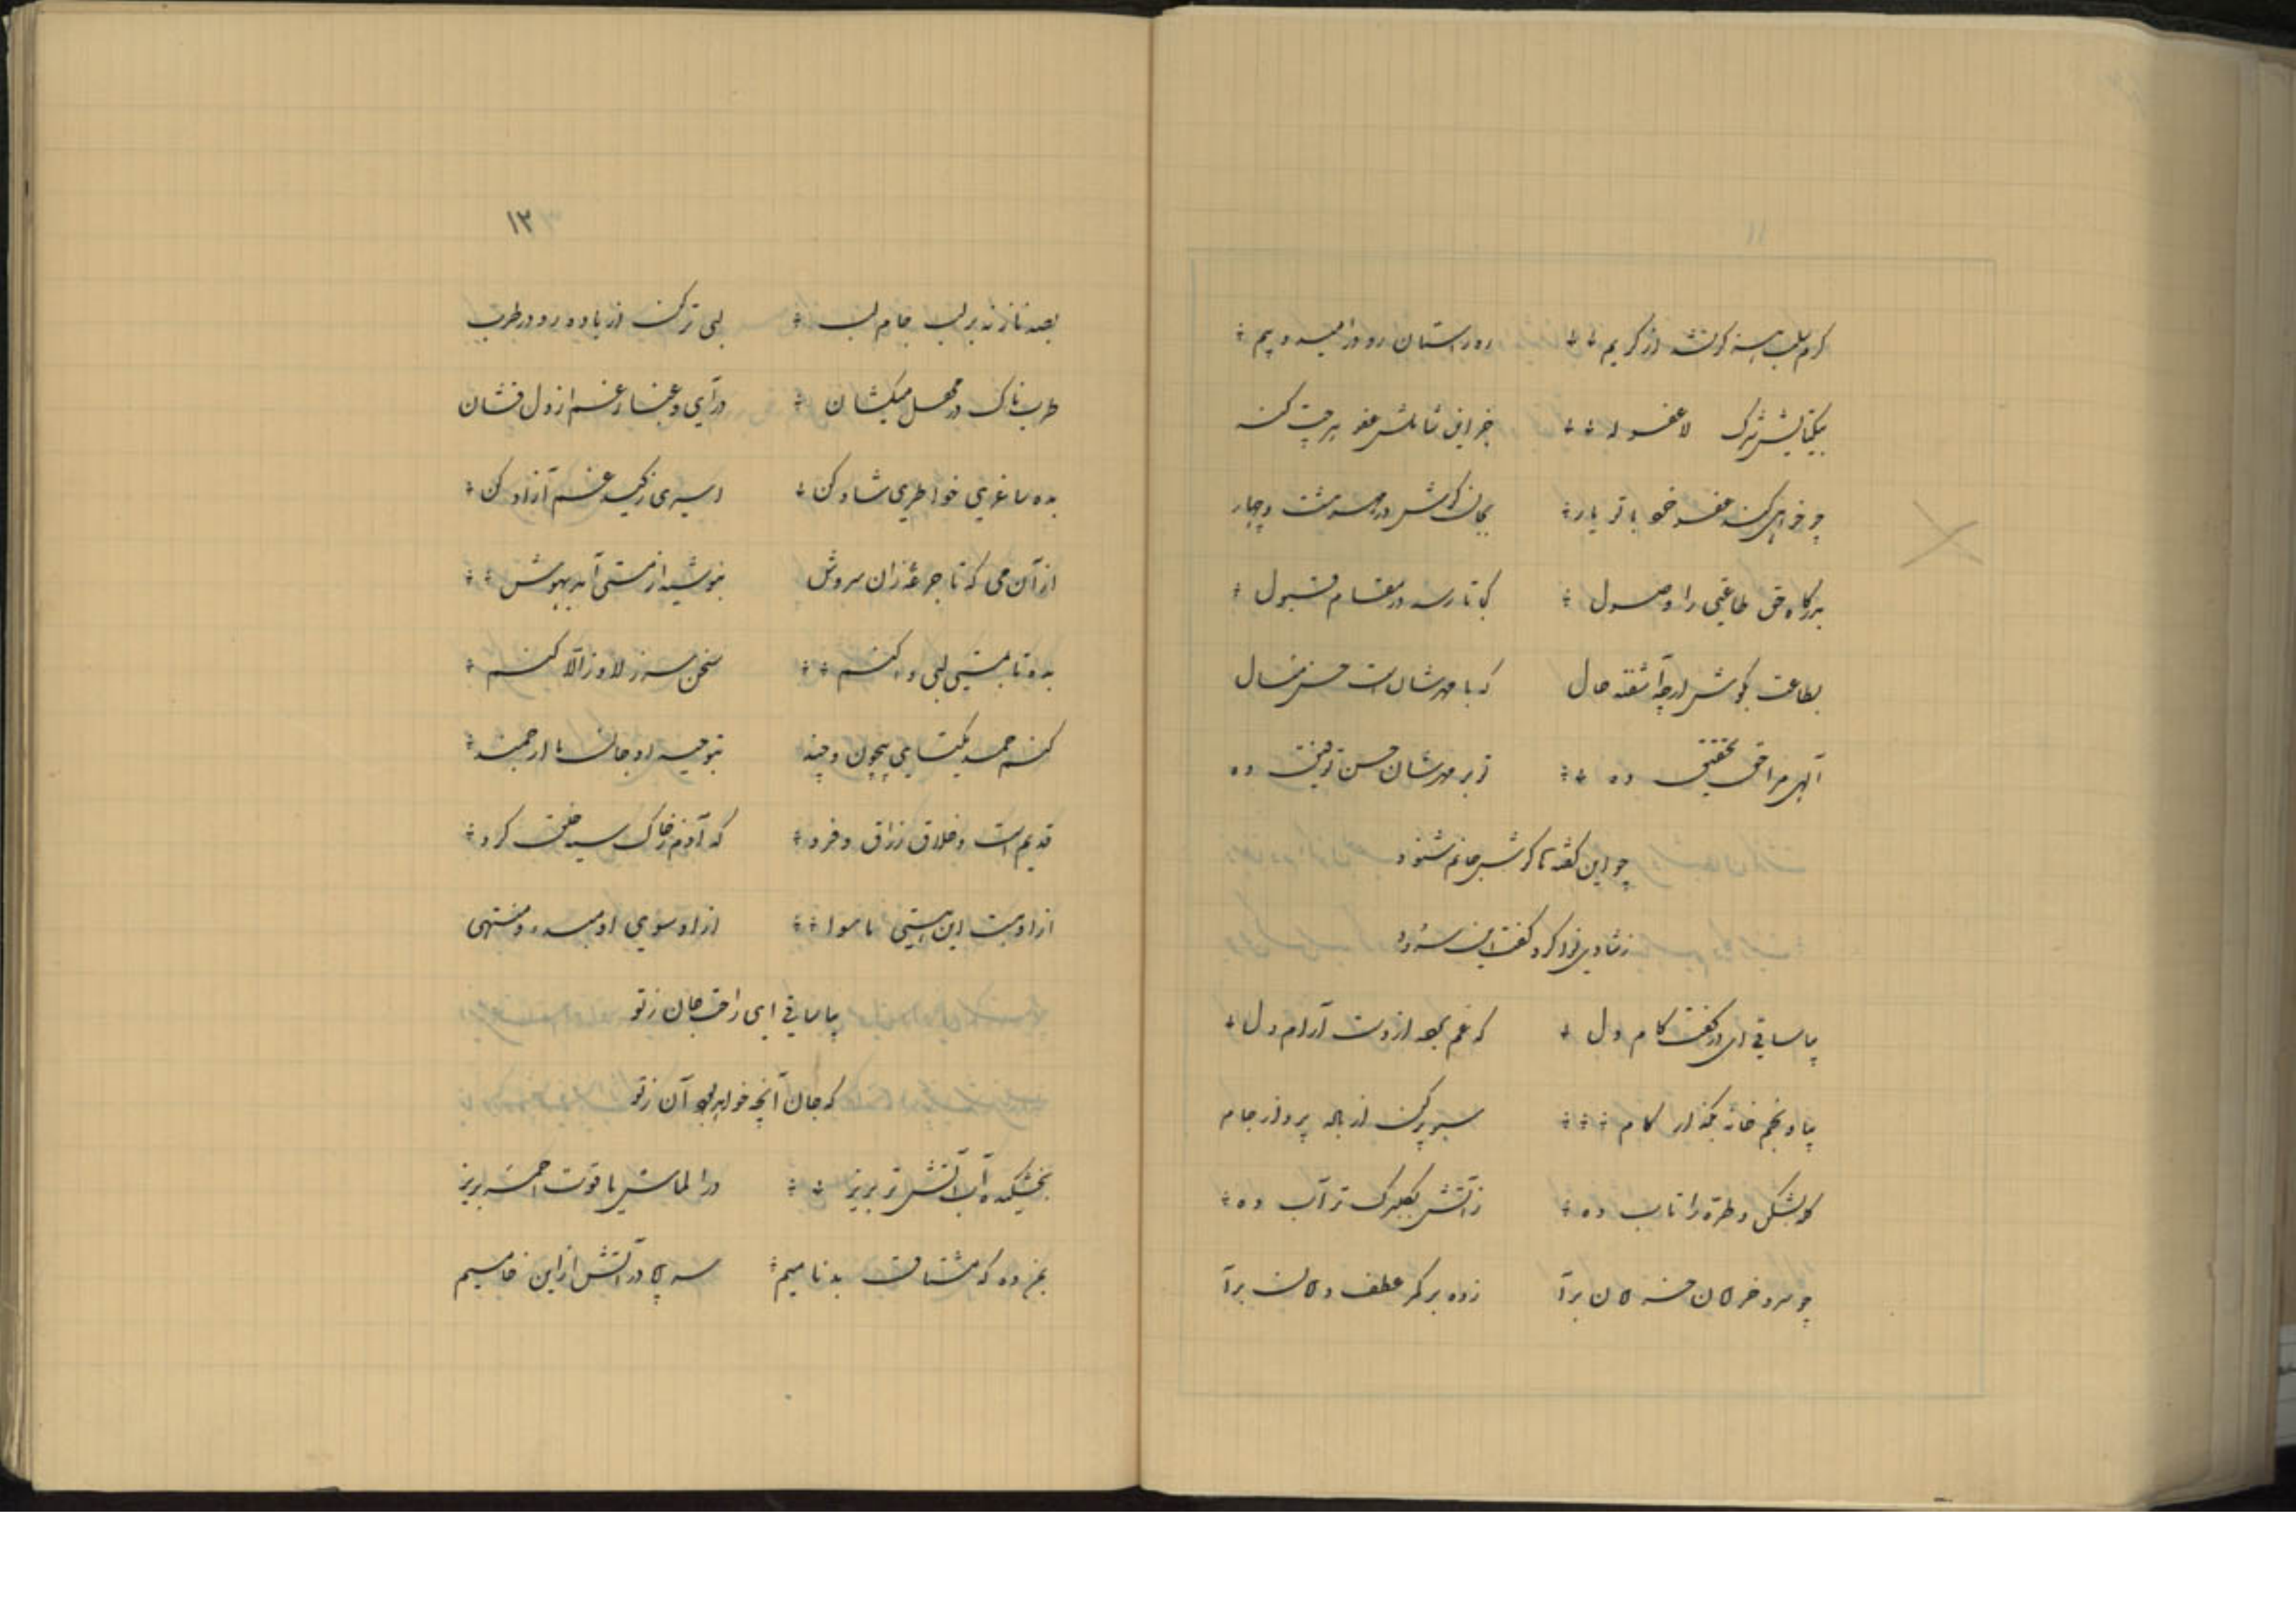 ۱۱
کرم بلب رسد از کریم رود راستان رود در امید و بیم
بیکتایش شرک لا جز این شاملش عفو هر چت کند
چو خواهی کند عفو با تو یار بجان کوش در مهر هشت و چهار
بدرگاه حق طاعتی را وصول کی تا رسد در مقام قبول
بطاعت بکوش ارچه آشفته حال که با مهرشان است حسن مآل
آلهی مرا حق تحقیق ده ز بر مهرشان حسن توفیق ده
چو این گفته تا گوش جانم شنود
ز شادی نوا کرد گفت این سرود
بیا ساقی ای در کفت کام دل که غم بود از دست آرام دل
بیا و بخم خانه بگذار کام سبو پر کن از باده پرداز جام
کله بشکن و طره را تاب ده ز آتش بگلبرگ تر آب ده
چو سرو خرامان خرامان برآ زده بر کمر عطف دامان برآ
۱۲
بصد ناز نه بر لب جام لب لبی تر کن از باده رو در طرب
طربناک در محفل میکشان درآی و غبار غم از دل فشان
بده ساغری خواطری شاد کن اسیری ز کید غم آزاد کن
از آن می که تا جرعهٔ زان سروش بنوشید از مستی آمد بهوش
بده تا بمستی لبی وا کنم سخن سر ز لا و ز الا کنم
کنم حمد یکتای بیچون و چند بتوحید او جان ما ارجمند
قدیم است و خلاق رزاق و فرد که آدم ز خاک سیه خلق کرد
از او هست این هستی ماسوا از او سوی او مبدء و منتهی
بیا ساقی ای راحت جان ز تو
که جان آنچه خواهد بود آن ز تو
بخشکیده آب آتش تر بریز در الماس یاقوت احمر بریز
بمن ده که مشتاق بدنامیم سر پا در آتش از این خامیم